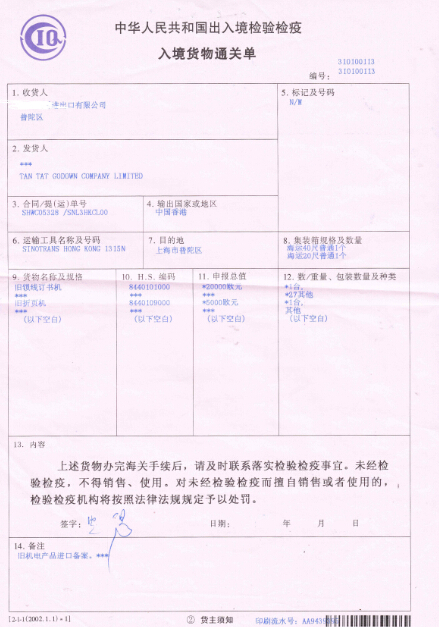 CIQ
中华人民共和国出入境检验检疫
入境货物通关单
310100113
编号: 310100113
1. 收货人
进出口有限公司
普陀区
5. 标记及号码
N/M
2. 发货人
***
TAN TAT GODOWN COMPANY LIMITED
3. 合同/提(运)单号
SHWC05328 /SNL3HKCL00
4. 输出国家或地区
中国香港
6. 运输工具名称及号码
SINOTRANS HONG KONG 1315N
7. 目的地
上海市普陀区
8. 集装箱规格及数量
海运40尺普通1个
海运20尺普通1个
9. 货物名称及规格
10. H.S. 编码
11. 申报总值
12. 数/重量、包装数量及种类
旧骑线订书机
8440101000
*20000欧元
*1台,
***
***
***
*27其他
旧折页机
8440109000
*5000欧元
*1台,
***
***
***
其他
(以下空白)
(以下空白)
(以下空白)
(以下空白)
13. 内容
上述货物办完海关手续后，请及时联系落实检验检疫事宜。未经检
验检疫，不得销售、使用。对未经检验检疫而擅自销售或者使用的，
检验检疫机构将按照法律法规规定予以处罚。
签字:
日期: 年 月 日
14. 备注
旧机电产品进口备案。***
[2-1-1(2002.1.1)*1]
② 货主须知
印刷流水号: